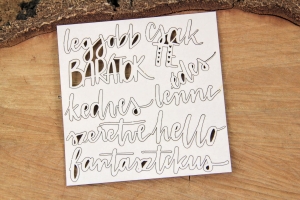 legjobb csak
BARÁTOK TE
édes
kedves lenne
szeretve hello
fantasztikus